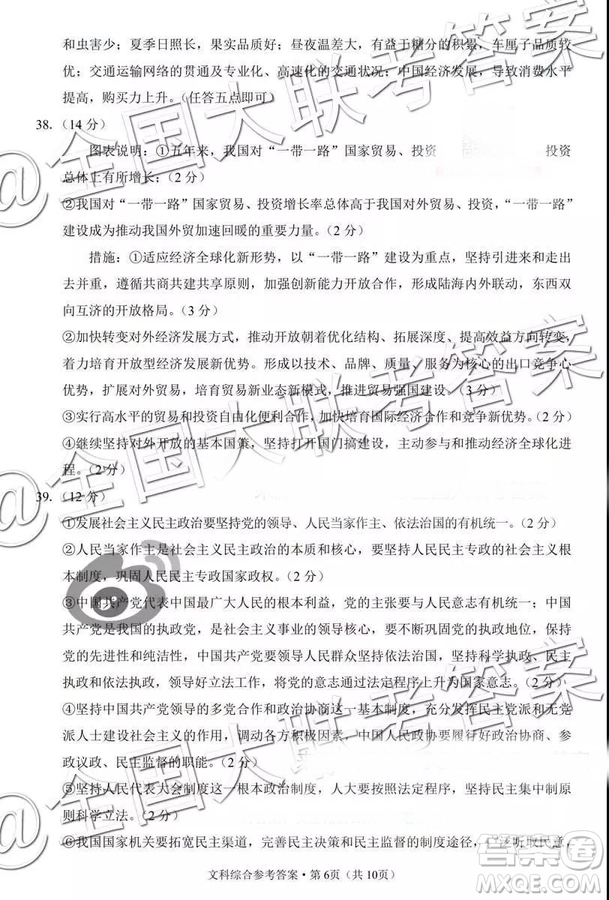 和虫害少；夏季日照长，果实品质好；昼夜温差大，有利于糖分的积累，车厘子品质较
优；交通运输网络的贯通及专业化、高速化的交通状况；中国经济发展，导致消费水平
提高，购买力上升。（任答五点即可）
38.（14 分）
图表说明：①五年来，我国对“一带一路”国家贸易、投资 投资
总体上有所增长；（2 分）
②我国对“一带一路”国家贸易、投资增长率总体高于我国对外贸易、投资，“一带一路”
建设成为推动我国外贸加速回暖的重要力量。（2 分）
措施：①适应经济全球化新形势，以“一带一路”建设为重点，坚持引进来和走出
去并重，遵循共商共建共享原则，加强创新能力开放合作，形成陆海内外联动、东西双
向互济的开放格局。（3 分）
②加快转变对外经济发展方式，推动开放朝着优化结构、拓展深度、提高效益方向转变，
着力培育开放型经济发展新优势。形成以技术、品牌、质量、服务为核心的出口竞争心
优势，扩展对外贸易，培育贸易新业态新模式，推进贸易强国建设。（3 分）
③实行高水平的贸易和投资自由化便利合作，加快培育国际经济合作和竞争新优势。（2 分）
④继续坚持对外开放的基本国策，坚持打开国门搞建设，主动参与和推动经济全球化进
程。（2 分）
39.（12 分）
①发展社会主义民主政治要坚持党的领导、人民当家作主、依法治国的有机统一。（2 分）
②人民当家作主是社会主义民主政治的本质和核心，要坚持人民民主专政的国体和根
本制度，巩固人民民主专政国家政权。（2 分）
③中国共产党代表中国最广大人民的根本利益，党的主张要与人民意志有机统一；中国
共产党是我国的执政党，是社会主义事业的领导核心，要坚持党的领导和执政地位，党
的先进性和纯洁性，中国共产党要领导人民群众坚持依法治国，坚持科学执政、民主
执政和依法执政，领导好立法工作，将党的意志通过法定程序上升为国家意志。（2 分）
④坚持中国共产党领导的多党合作和政治协商的基本政治制度，充分发挥民主党派和无党
派人士建设社会主义的作用，调动各方积极因素。中国民主党要履行好政治协商、参
政议政、民主监督的职能。（2 分）
⑤坚持人民代表大会制度这一根本政治制度，人大要遵循法定程序，坚持民主集中制
原则科学立法。（2 分）
⑥我国国家机关要拓宽民主渠道，完善民主决策和民主监督的制度途径，广泛听取民意，
文科综合参考答案·第 6页（共 10页）
@全国大联考答案
@全国大联考答案
@全国大联考答案